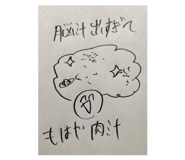 脳汁出すぎて
もはや肉汁